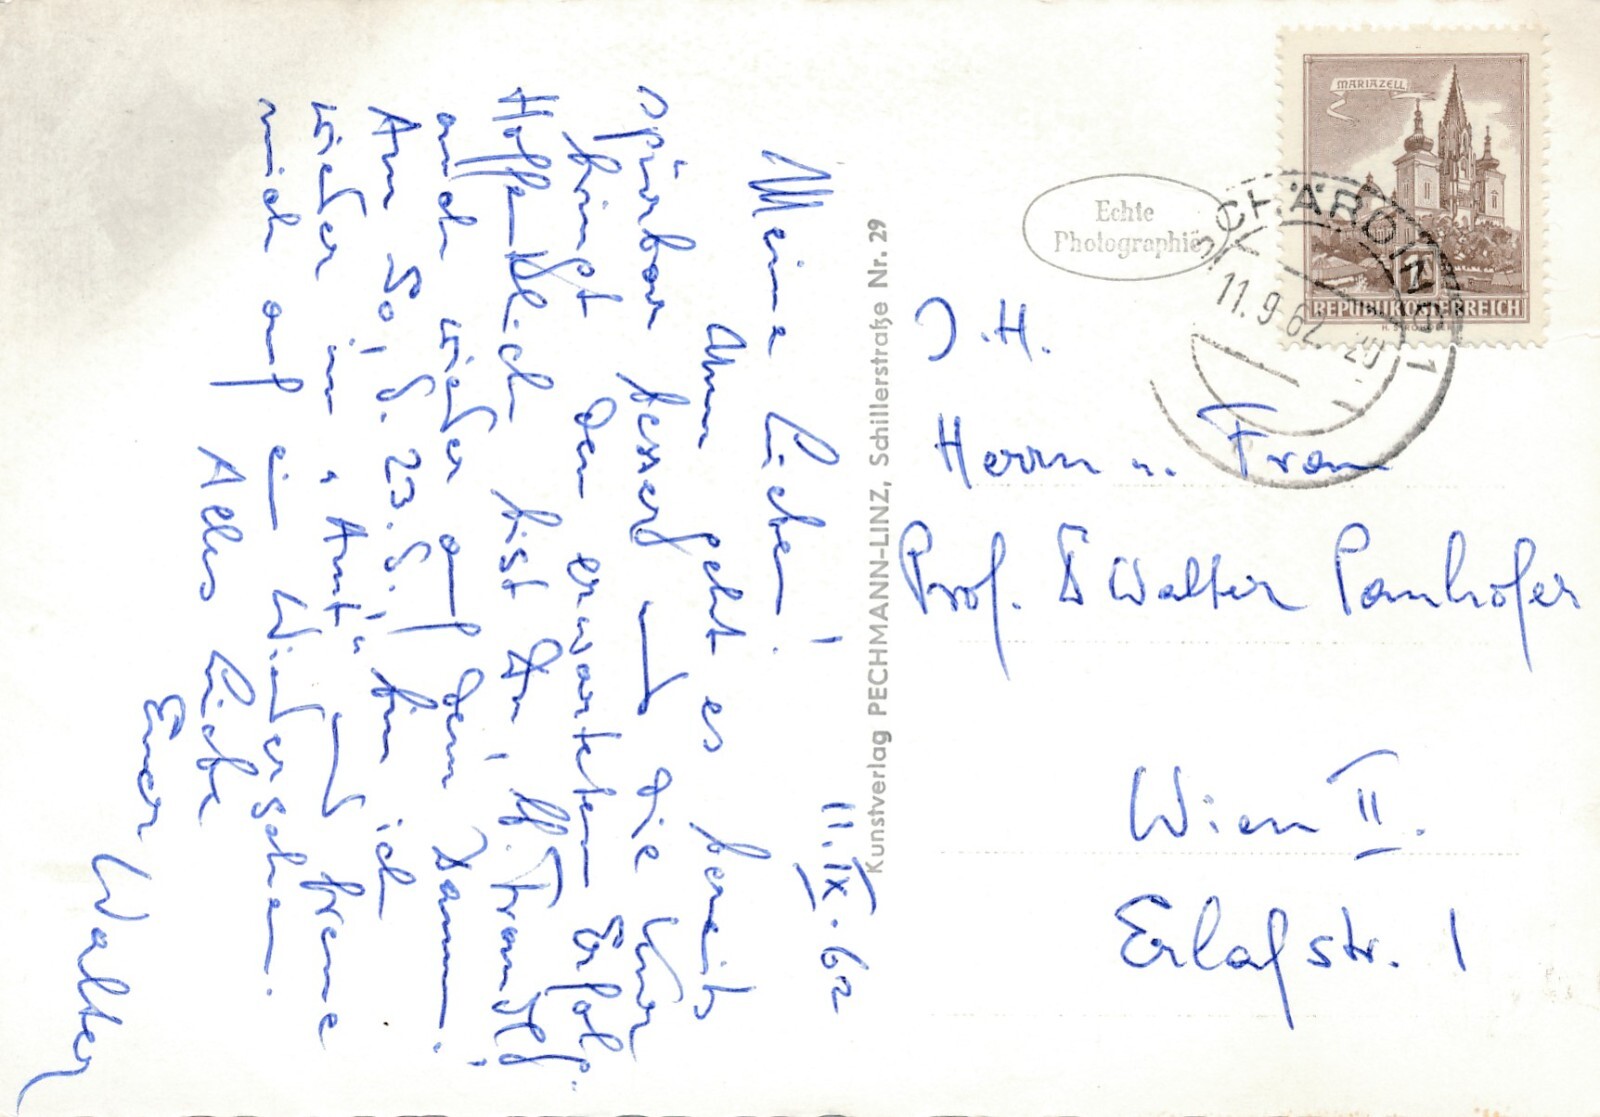 11.IX.62
Meine Lieben!
Nun geht es bereits
spürbar besser und die Kur
bringt den erwarteten Erfolg.
Hoffentlich bist Du, lb.
auch wieder auf dem Damm.
Am So, d. 23. d., bin ich
wieder im "Amt" und freue
mich auf ein Wiedersehen.
Alles Liebe
Euer Walter
Kunstverlag PECHMANN-LINZ, Schillerstraße Nr. 29
Echte
Photographie
MARIAZELL
1
REPUBLIK ÖSTERREICH
SCHÄRDING
11.9.62-20
1
I.H.
Herrn u. Frau
Prof. D Walter Panhofer
Wien II.
Erlafstr. 1